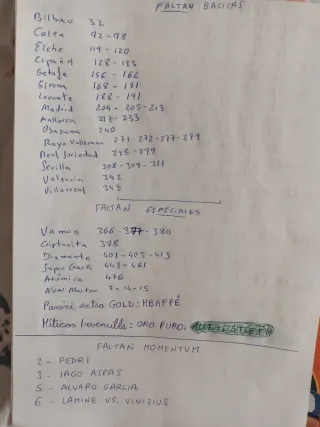 FALTAN BASICAS
Bilbao 32
Celta 92-98
Elche 119-120
Español 128-133
Getafe 156-162
Girona 168-171
Levante 188-191
Madrid 204-205-213
Mallorca 217-233
Osasuna 240
Rayo Vallecano 271-272-277-279
Real Sociedad 298-299
Sevilla 308-309-311
Valencia 342
Villarreal 343
FALTAN ESPECIALES
Vamos 366-377-380
Cristanita 388
Diamante 401-403-413
Super Crack 443-461
Atómica 476
New Master 7-14-15
Panini extra GOLD: MBAPPÉ
Míticos Irrompible: ORO PURO.
FALTAN MOMENTUM
2 - PEDRI
3 - IAGO ASPAS
5 - ALVARO GARCIA
6 - LAMINE VS. VINIZIUS